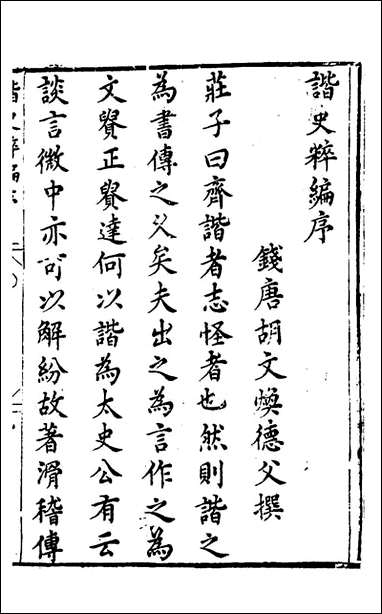 諧史粹編序
錢唐胡文煥德父撰
莊子曰齊諧者志怪者也然則諧之
為書傳之久矣夫出之為言作之為
文賢正賢達何以諧為太史公有云
談言微中亦可以解紛故著滑稽傳